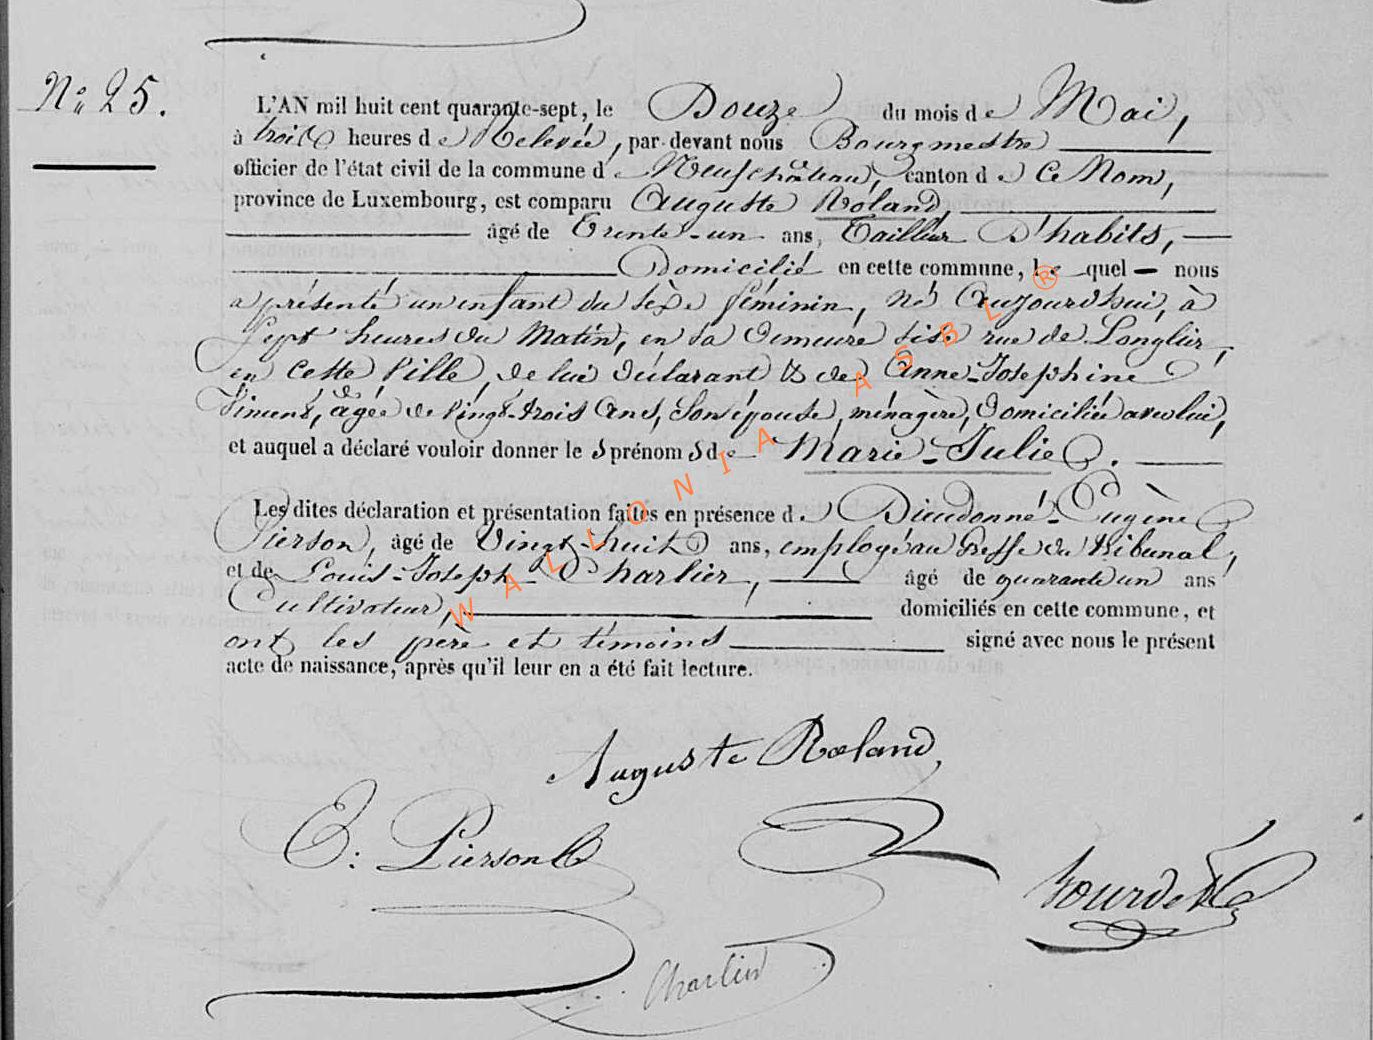 N.º 25.
L'AN mil huit cent quarante-sept, le Douze du mois de Mai,
à trois heures de Relevée, par devant nous Bourgmestre
officier de l'état civil de la commune de Neufchâteau, canton de ce Nom,
province de Luxembourg, est comparu Auguste Roland,
âgé de Trente-un ans, Tailleur D'habits,
Domicilié en cette commune, lequel nous
a présenté un enfant du sèxe féminin, né Aujourd'hui, à
Sept heures du Matin, en sa demeure sise rue de Longlier,
en cette Ville, de lui déclarant & de Anne-Josephine
agée de Vingt-trois Ans, Son épouse, ménagère, Domiciliée avec lui,
et auquel a déclaré vouloir donner les prénoms de Marie-Julie.
Les dites déclaration et présentation faites en présence de Dieudonné-Eugène
Pierson, âgé de Vingt-huit ans, employé au Greffe du tribunal,
et de Louis-Joseph-Charlier, âgé de quarante un ans
Cultivateur, domiciliés en cette commune, et
ont les père et témoins signé avec nous le présent
acte de naissance, après qu'il leur en a été fait lecture.
Auguste Roland,
E: Pierson
Bourdet
Charlier
WALLONIA ASBL ®